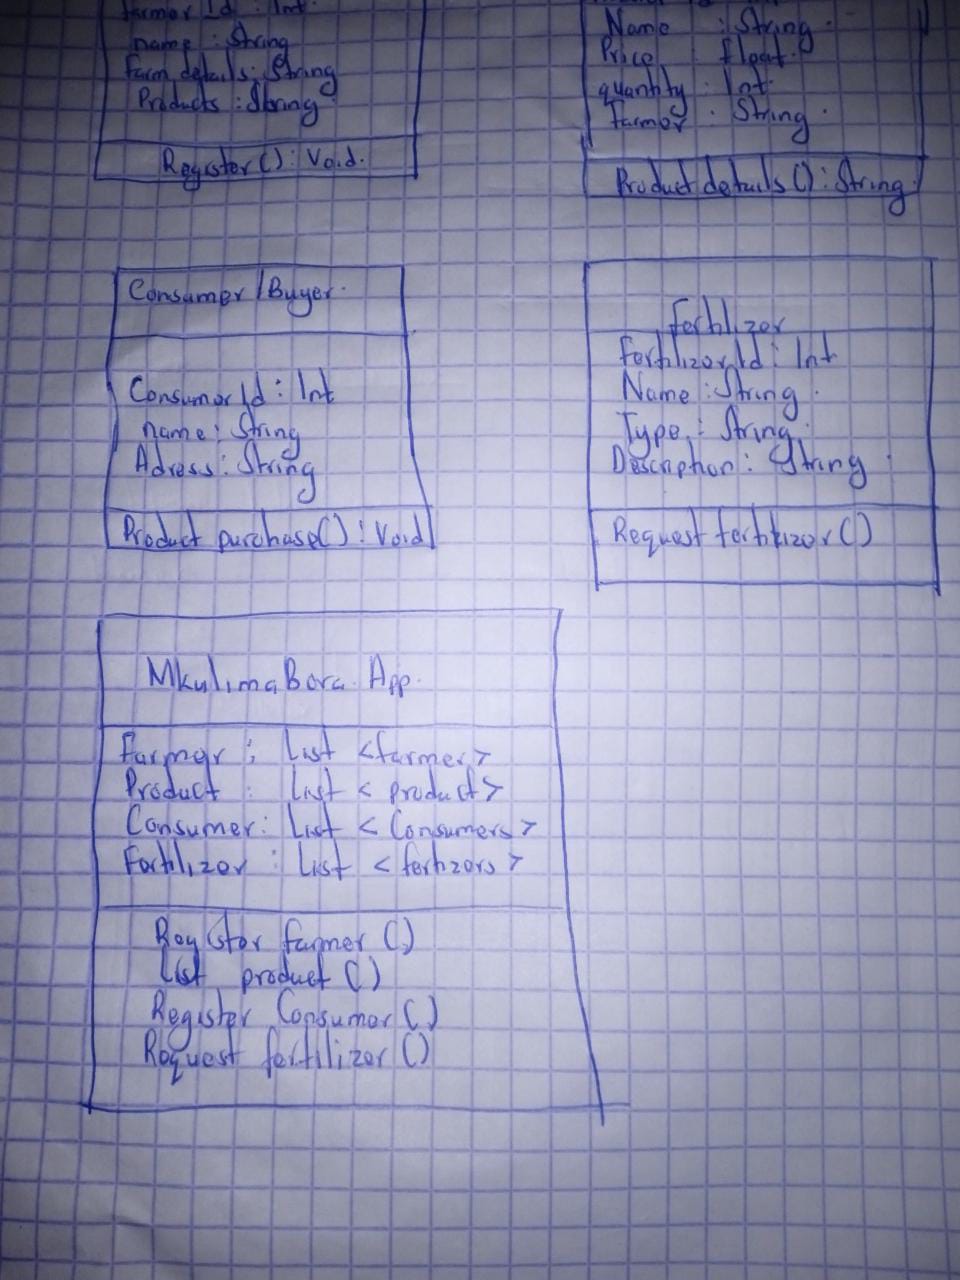 farmer Id : Int
name : String
Farm details : String
Products : String
Register () : Void.
Name : String
Price : float
quantity : Int
farmer : String
Product details () : String
Consumer / Buyer.
Consumer Id : Int
name : String
Adress : String
Product purchase() : Void
fertilizer
Fertilizer Id : Int
Name : String
Type : String
Description : String
Request fertilizer ()
Mkulima Bora App.
Farmer : List <farmer>
Product : List < product>
Consumer : List < Consumers>
Fertilizer : List < fertizers>
Register farmer ()
List product ()
Register Consumer ()
Request fertilizer ()